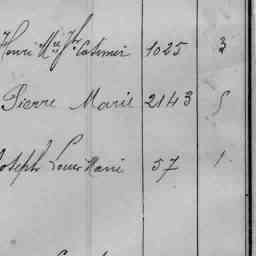 Henri Mie Jh Casimir 1025 3
Pierre Marie 2143 5
Joseph Louis Marie 57 1